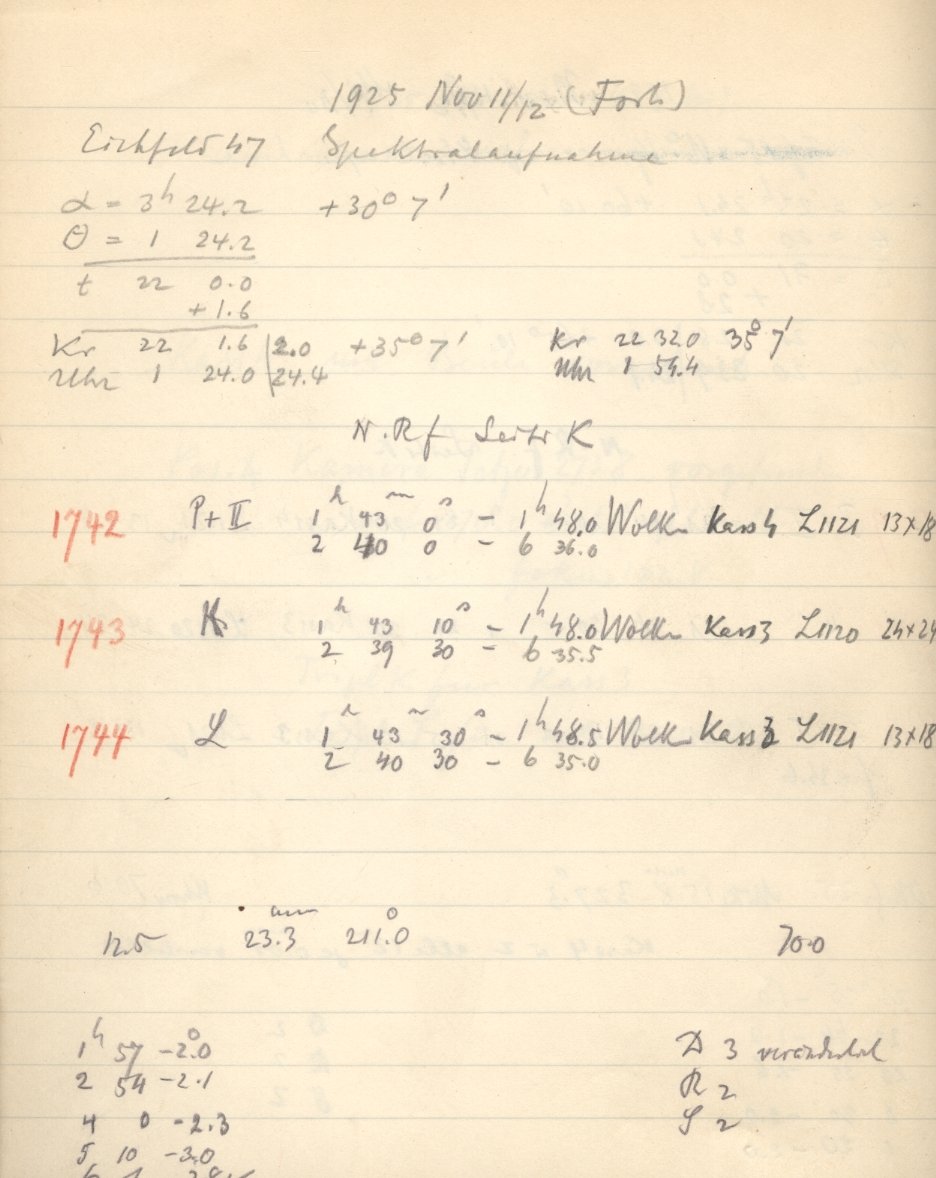 1925 Nov 11/12 (Forts)
Eichfeld 47 Spektralaufnahme
α = 3h 24.2 +30° 7'
θ = 1 24.2
t 22 0.0
+1.6
Kr 22 1.6 | 2.0 +35° 7' Kr 22 32.0 35° 7'
Uhr 1 24.0 | 24.4 Uhr 1 54.4
N.Rf Seite K
1742 P+II 1h 43m 0s – 1h 48.0 Wolk Kass 4 L1121 13×18
2 40 0 – 6 36.0
1743 K 1h 43 10s – 1h 48.0 Wolk Kass 3 L1120 24×24
2 39 30 – 6 35.5
1744 L 1h 43m 30s – 1h 48.5 Wolk Kass 2 L1121 13×18
2 40 30 – 6 35.0
12.5 23.3mm 211.0° 700
1h 57 –2.0° D 3 veränderlich
2 54 –2.1 R 2
4 0 –2.3 S 2
5 10 –3.0